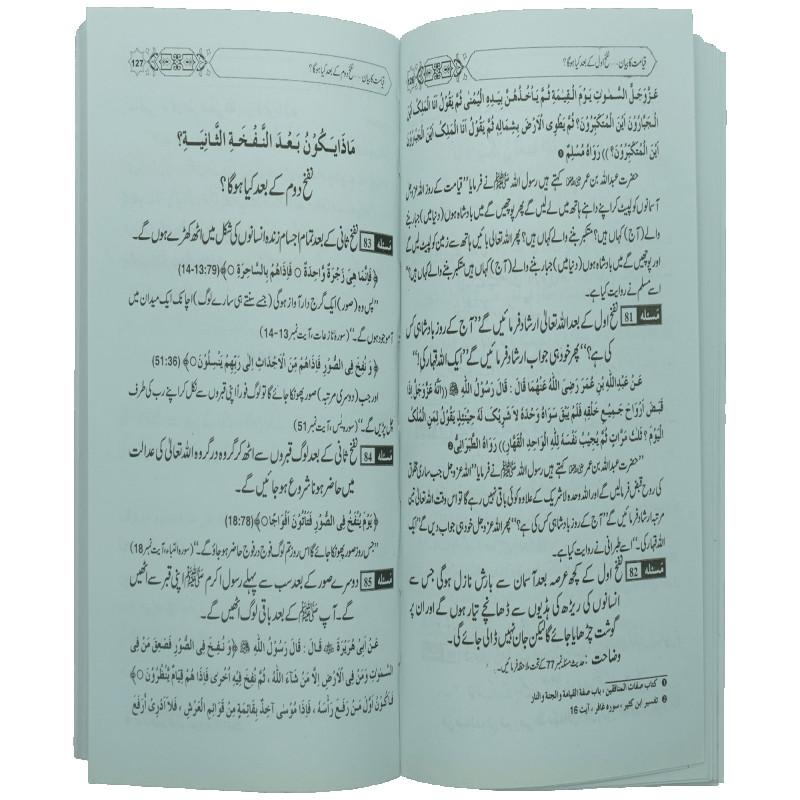 قیامت کا بیان ... نفخ اول کے بعد کیا ہوگا؟
126
عَزَّوَجَلَّ السَّمٰوٰتِ یَوْمَ الْقِیٰمَةِ ثُمَّ یَاْخُذُهُنَّ بِیَدِهِ الْیُمْنٰی ثُمَّ یَقُوْلُ اَنَا الْمَلِکُ اَیْنَ
الْجَبَّارُوْنَ اَیْنَ الْمُتَکَبِّرُوْنَ؟ ثُمَّ یَطْوِی الْاَرْضَ بِشِمَالِهٖ ثُمَّ یَقُوْلُ اَنَا الْمَلِکُ اَیْنَ الْجَبَّارُوْنَ
اَیْنَ الْمُتَکَبِّرُوْنَ؟)) رَوَاهُ مُسْلِمٌ ❶
حضرت عبداللہ بن عمر رضی اللہ عنہ کہتے ہیں رسول اللہ ﷺ نے فرمایا "قیامت کے روز اللہ عزوجل
آسمانوں کو لپیٹ کر اپنے داہنے ہاتھ میں لے لیں گے پھر پوچھیں گے میں بادشاہ ہوں (دنیا میں) جبار بننے
والے (آج) کہاں ہیں؟ متکبر بننے والے کہاں ہیں؟" پھر اللہ تعالیٰ بائیں ہاتھ سے زمین کو لپیٹ لیں گے
اور پوچھیں گے میں بادشاہ ہوں (دنیا میں) جبار بننے والے (آج) کہاں ہیں متکبر بننے والے کہاں ہیں؟"
اسے مسلم نے روایت کیا ہے۔
مسئلہ 81 نفخ اول کے بعد اللہ تعالیٰ ارشاد فرمائیں گے "آج کے روز بادشاہی کس
کی ہے؟" پھر خود ہی جواب ارشاد فرمائیں گے "ایک اللہ قہار کی!"
عَنْ عَبْدِاللّٰهِ بْنِ عُمَرَ رَضِیَ اللّٰهُ عَنْهُمَا قَالَ : قَالَ رَسُوْلُ اللّٰهِ ﷺ ((اَنَّهٗ عَزَّوَجَلَّ اِذَا
قَبَضَ اَرْوَاحَ جَمِیْعِ خَلْقِهٖ فَلَمْ یَبْقَ سِوَاهُ وَحْدَهٗ لَا شَرِیْکَ لَهٗ حِیْنَئِذٍ یَقُوْلُ لِمَنِ الْمُلْکُ
الْیَوْمَ ؟ ثَلٰثَ مَرَّاتٍ ثُمَّ یُجِیْبُ نَفْسَهٗ لِلّٰهِ الْوَاحِدِ الْقَهَّارِ)) رَوَاهُ الطَّبَرَانِیُّ ❷
حضرت عبداللہ بن عمر رضی اللہ عنہما کہتے ہیں رسول اللہ ﷺ نے فرمایا "اللہ عزوجل جب ساری مخلوق
کی روح قبض فرما لیں گے اور اللہ وحدہ لاشریک کے علاوہ کوئی باقی نہیں رہے گا تو اس وقت اللہ تعالیٰ تین
مرتبہ ارشاد فرمائیں گے "آج کے روز بادشاہی کس کی ہے؟" پھر اللہ عزوجل خود ہی جواب دیں گے "ایک
اللہ قہار کی۔" اسے طبرانی نے روایت کیا ہے۔
مسئلہ 82 نفخ اول کے کچھ عرصہ بعد آسمان سے بارش نازل ہوگی جس سے
انسانوں کی ریڑھ کی ہڈیوں سے ڈھانچے تیار ہوں گے اور ان پر
گوشت چڑھایا جائے گا لیکن جان نہیں ڈالی جائے گی۔
وضاحت : حدیث مسئلہ نمبر 77 کے تحت ملاحظہ فرمائیں۔
❶ کتاب صفات المنافقین ، باب صفة القیامة والجنة والنار
❷ تفسیر ابن کثیر ، سورہ غافر ، آیت 16
قیامت کا بیان ... نفخ دوم کے بعد کیا ہوگا؟
127
مَاذَا یَکُوْنُ بَعْدَ النَّفْخَةِ الثَّانِیَةِ؟
نفخ دوم کے بعد کیا ہوگا؟
مسئلہ 83 نفخ ثانی کے بعد تمام اجسام زندہ انسانوں کی شکل میں اٹھ کھڑے ہوں گے۔
﴿ فَاِنَّمَا هِیَ زَجْرَةٌ وَّاحِدَةٌ ○ فَاِذَا هُمْ بِالسَّاهِرَةِ ○﴾ (79:13-14)
"پس وہ (صور) ایک گرج دار آواز ہوگی (جسے سنتے ہی سارے لوگ) اچانک ایک میدان میں
آموجود ہوں گے۔" (سورہ نازعات، آیت نمبر 13-14)
﴿وَ نُفِخَ فِی الصُّوْرِ فَاِذَا هُمْ مِّنَ الْاَجْدَاثِ اِلٰی رَبِّهِمْ یَنْسِلُوْنَ○﴾ (51:36)
اور جب (دوسری مرتبہ) صور پھونکا جائے گا تو لوگ فوراً اپنی قبروں سے نکل کر اپنے رب کی طرف
چل پڑیں گے۔" (سورہ یٰس، آیت نمبر 51)
مسئلہ 84 نفخ ثانی کے بعد لوگ قبروں سے اٹھ کر گروہ در گروہ اللہ تعالیٰ کی عدالت
میں حاضر ہونا شروع ہو جائیں گے۔
﴿یَوْمَ یُنْفَخُ فِی الصُّوْرِ فَتَاْتُوْنَ اَفْوَاجًا○﴾ (18:78)
"جس روز صور پھونکا جائے گا اس روز تم لوگ فوج در فوج حاضر ہو جاؤ گے۔" (سورہ النباء، آیت نمبر 18)
مسئلہ 85 دوسرے صور کے بعد سب سے پہلے رسول اکرم ﷺ اپنی قبر سے اٹھیں
گے۔ آپ ﷺ کے بعد باقی لوگ اٹھیں گے۔
عَنْ اَبِیْ هُرَیْرَةَ قَالَ : قَالَ رَسُوْلُ اللّٰهِ ﷺ ((وَ نُفِخَ فِی الصُّوْرِ فَصَعِقَ مَنْ فِی
السَّمٰوٰتِ وَمَنْ فِی الْاَرْضِ اِلَّا مَنْ شَآءَ اللّٰهُ ، ثُمَّ نُفِخَ فِیْهِ اُخْرٰی فَاِذَا هُمْ قِیَامٌ یَّنْظُرُوْنَ﴾
فَاَکُوْنُ اَوَّلَ مَنْ رَفَعَ رَأْسَهٗ ، فَاِذَا مُوْسٰی آخِذٌ بِقَائِمَةٍ مِنْ قَوَائِمِ الْعَرْشِ ، فَلَا اَدْرِیْ اَرَفَعَ